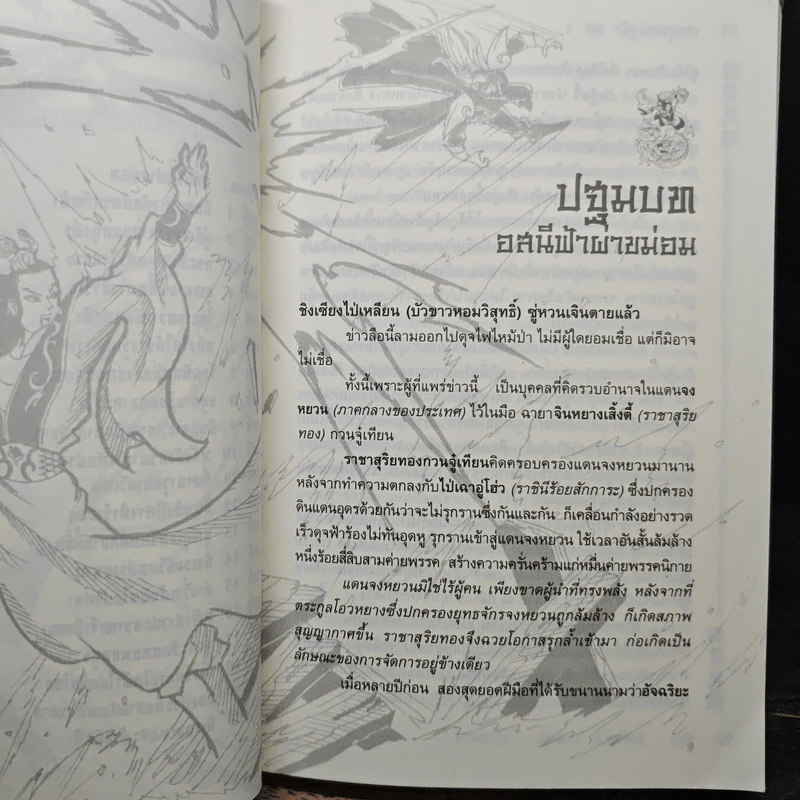 ปฐมบท
อสนีฟ้าผ่าขม่อม
ชิงเซียงไป่เหลียน (บัวขาวหอมวิสุทธิ์) ซู่หวนเจินตายแล้ว
ข่าวลือนี้ลามออกไปดุจไฟไหม้ป่า ไม่มีผู้ใดยอมเชื่อ แต่ก็มิอาจ
ไม่เชื่อ
ทั้งนี้เพราะผู้ที่แพร่ข่าวนี้ เป็นบุคคลที่คิดรวบอำนาจในแดนจง
หยวน (ภาคกลางของประเทศ) ไว้ในมือ ฉายาจินหยางเสิ้งตี้ (ราชาสุริย
ทอง) กวนจู๋เทียน
ราชาสุริยทองกวนจู๋เทียนคิดครอบครองแดนจงหยวนมานาน
หลังจากทำความตกลงกับไป่เฉาอู่โฮ่ว (ราชินีร้อยสักการะ) ซึ่งปกครอง
ดินแดนอุดรด้วยกันว่าจะไม่รุกรานซึ่งกันและกัน ก็เคลื่อนกำลังอย่างรวด
เร็วดุจฟ้าร้องไม่ทันอุดหู รุกรานเข้าสู่แดนจงหยวน ใช้เวลาอันสั้นล้มล้าง
หนึ่งร้อยสี่สิบสามค่ายพรรค สร้างความครั่นคร้ามแก่หมื่นค่ายพรรคนิกาย
แดนจงหยวนมิใช่ไร้ผู้คน เพียงขาดผู้นำที่ทรงพลัง หลังจากที่
ตระกูลโอวหยางซึ่งปกครองยุทธจักรจงหยวนถูกล้มล้าง ก็เกิดสภาพ
สุญญากาศขึ้น ราชาสุริยทองจึงฉวยโอกาสรุกล้ำเข้ามา ก่อเกิดเป็น
ลักษณะของการจัดการอยู่ข้างเดียว
เมื่อหลายปีก่อน สองสุดยอดฝีมือที่ได้รับขนานนามว่าอัจฉริยะ